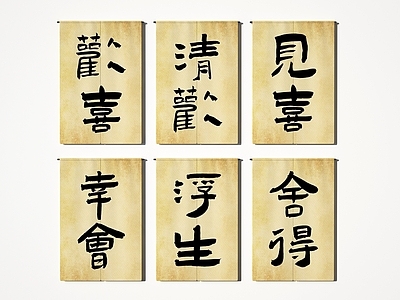 歡喜
清歡
見喜
幸會
浮生
舍得